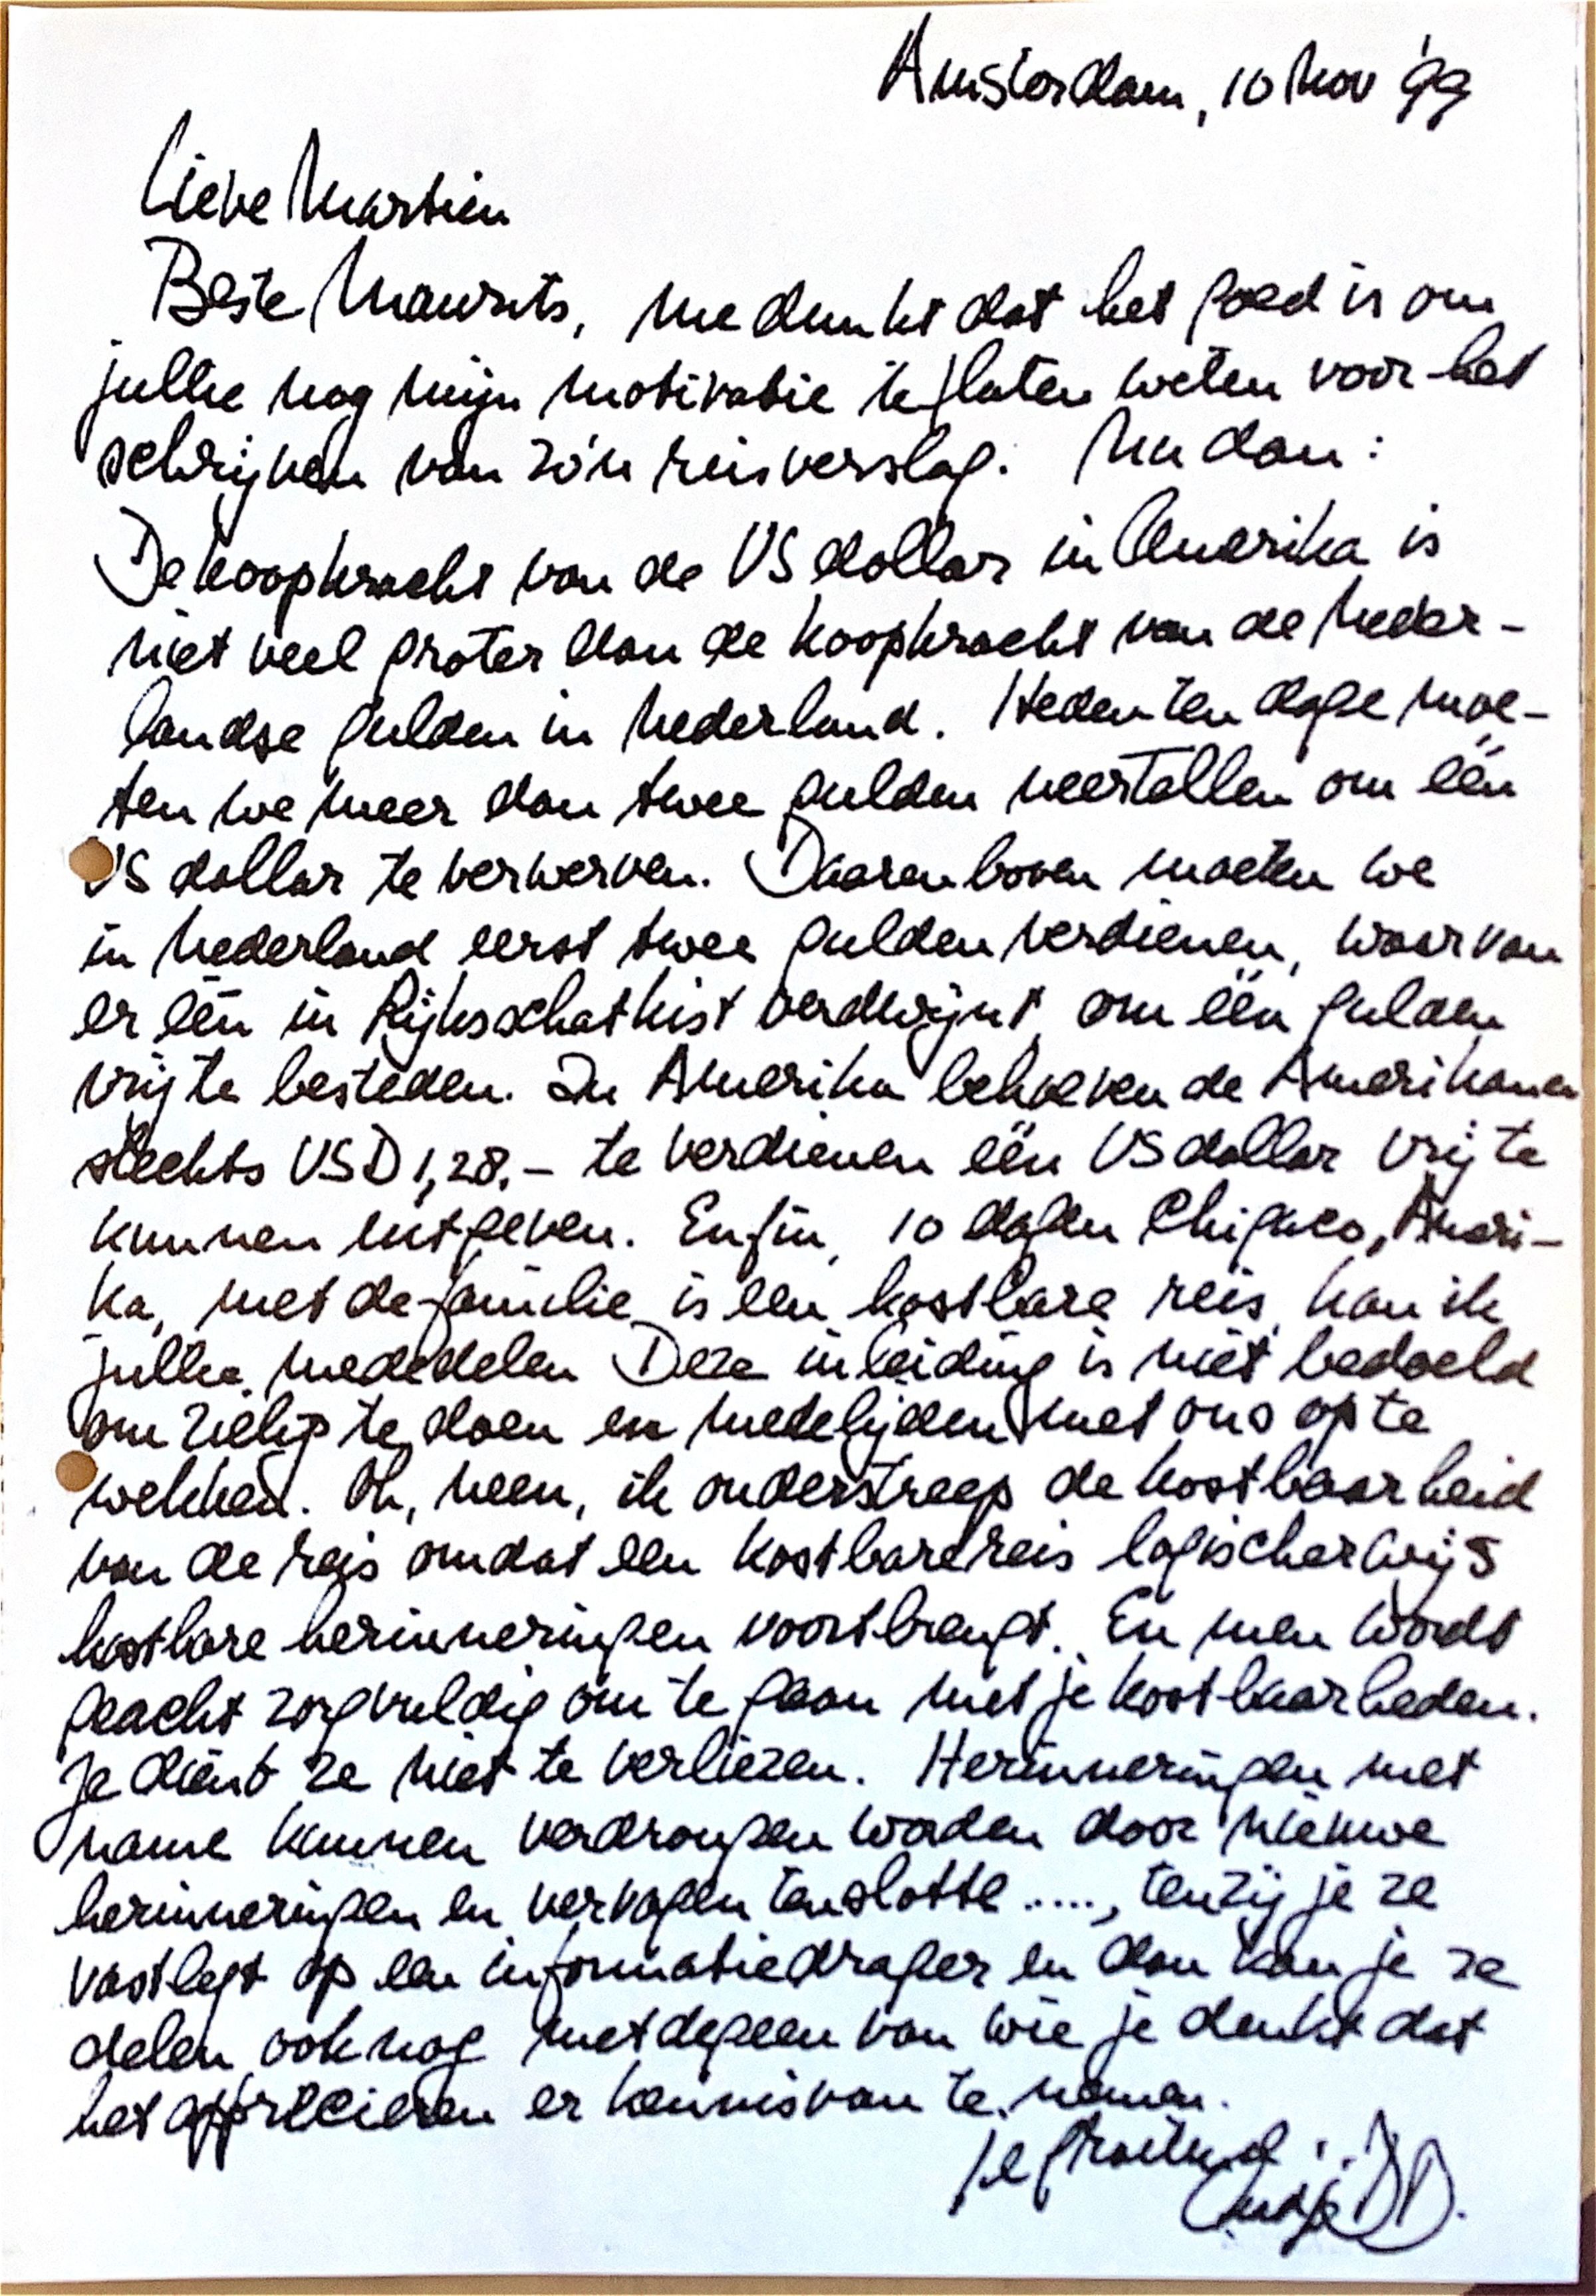 Amsterdam, 10 Nov '99
Lieve Martien
Beste Maurits, me dunkt dat het goed is om
jullie nog mijn motivatie te laten weten voor het
schrijven van zo'n reisverslag. Nu dan:
De koopkracht van de US dollar in Amerika is
niet veel groter dan de koopkracht van de Neder-
landse gulden in Nederland. Heden ten dage moe-
ten we meer dan twee gulden neertellen om één
US dollar te verwerven. Daarenboven moeten we
in Nederland eerst twee gulden verdienen, waarvan
er één in Rijksschatkist verdwijnt, om één gulden
vrij te besteden. In Amerika behoeven de Amerikanen
slechts USD 1,28.- te verdienen één US dollar vrij te
kunnen uitgeven. Enfin, 10 dagen Chigaco, Ameri-
ka, met de familie is een kostbare reis, kan ik
jullie mededelen Deze inleiding is niet bedoeld
om zielig te doen en medelijden met ons op te
wekken. Oh, neen, ik onderstreep de kostbaarheid
van de reis omdat een kostbare reis logischerwijs
kostbare herinneringen voortbrengt. En men wordt
geacht zorgvuldig om te gaan met je kostbaarheden.
Je dient ze niet te verliezen. Herinneringen met
name kunnen verdrongen worden door nieuwe
herinneringen en vervagen tenslotte ....., tenzij je ze
vastlegt op een informatiedrager en dan kan je ze
delen ook nog met degeen van wie je denkt dat
het appreciëren er kennis van te nemen.
D.